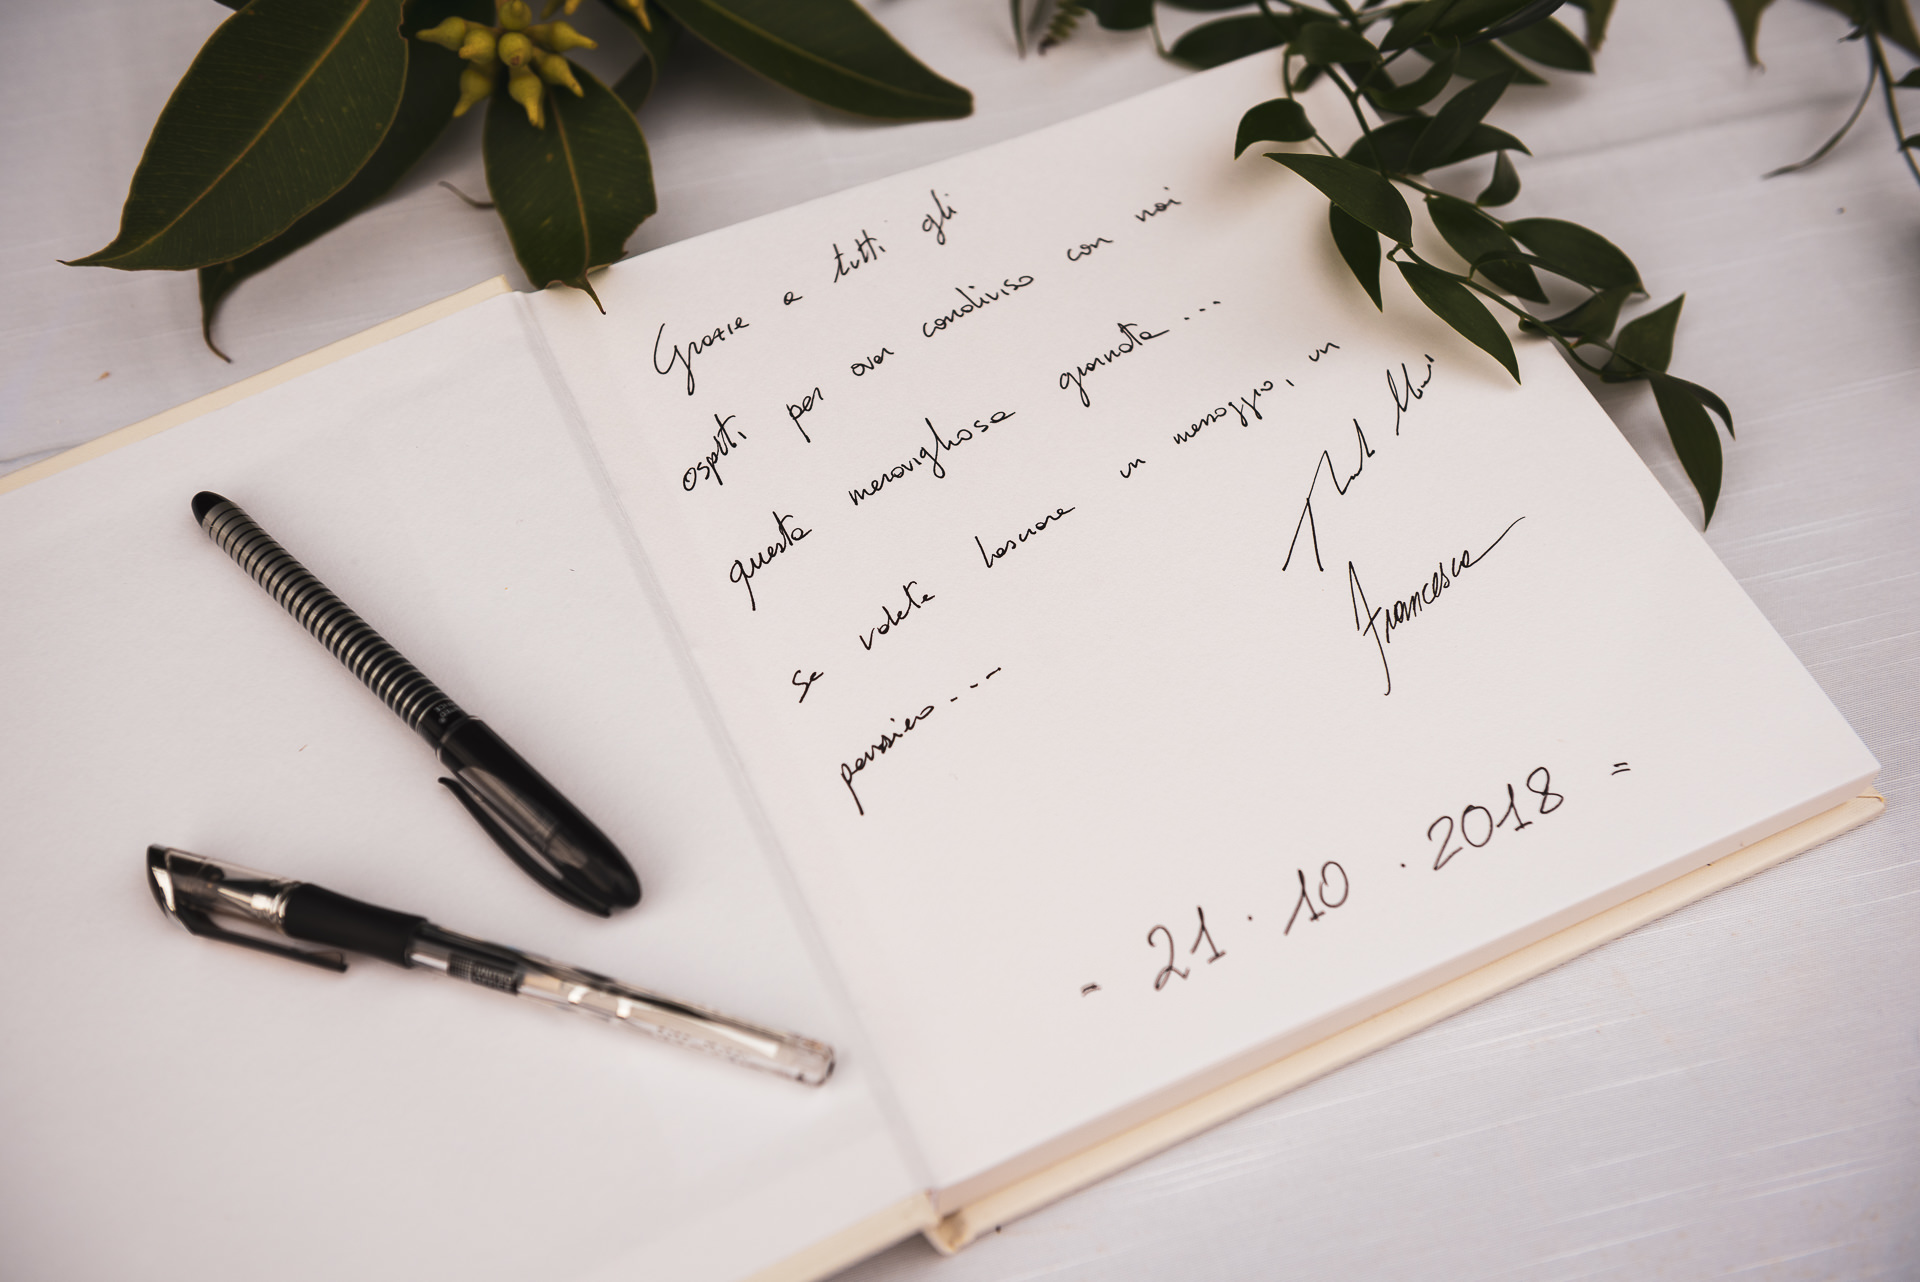 Grazie a tutti gli
ospiti per aver condiviso con noi
questa meravigliosa giornata...
se volete lasciare un messaggio, un
pensiero...
Francesca
= 21.10.2018 =